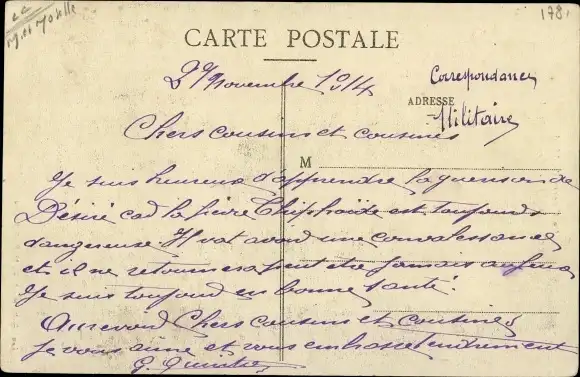 M et Moselle
178
CARTE POSTALE
27 Novembre 1914
Correspondance
ADRESSE
Militaire
Chers cousins et cousines
M
Je suis heureux d'apprendre la guerison de
Désiré cad la fièvre Thiphoïde est toujours
dangereuse Il vat avoir une convalessance
et il ne retournera peut etre jamais au feu
Je suis toujour en bonne santé.
Aurevoir Chers cousins et cousines
Je vous aime et vous embrasse tendrement
G.